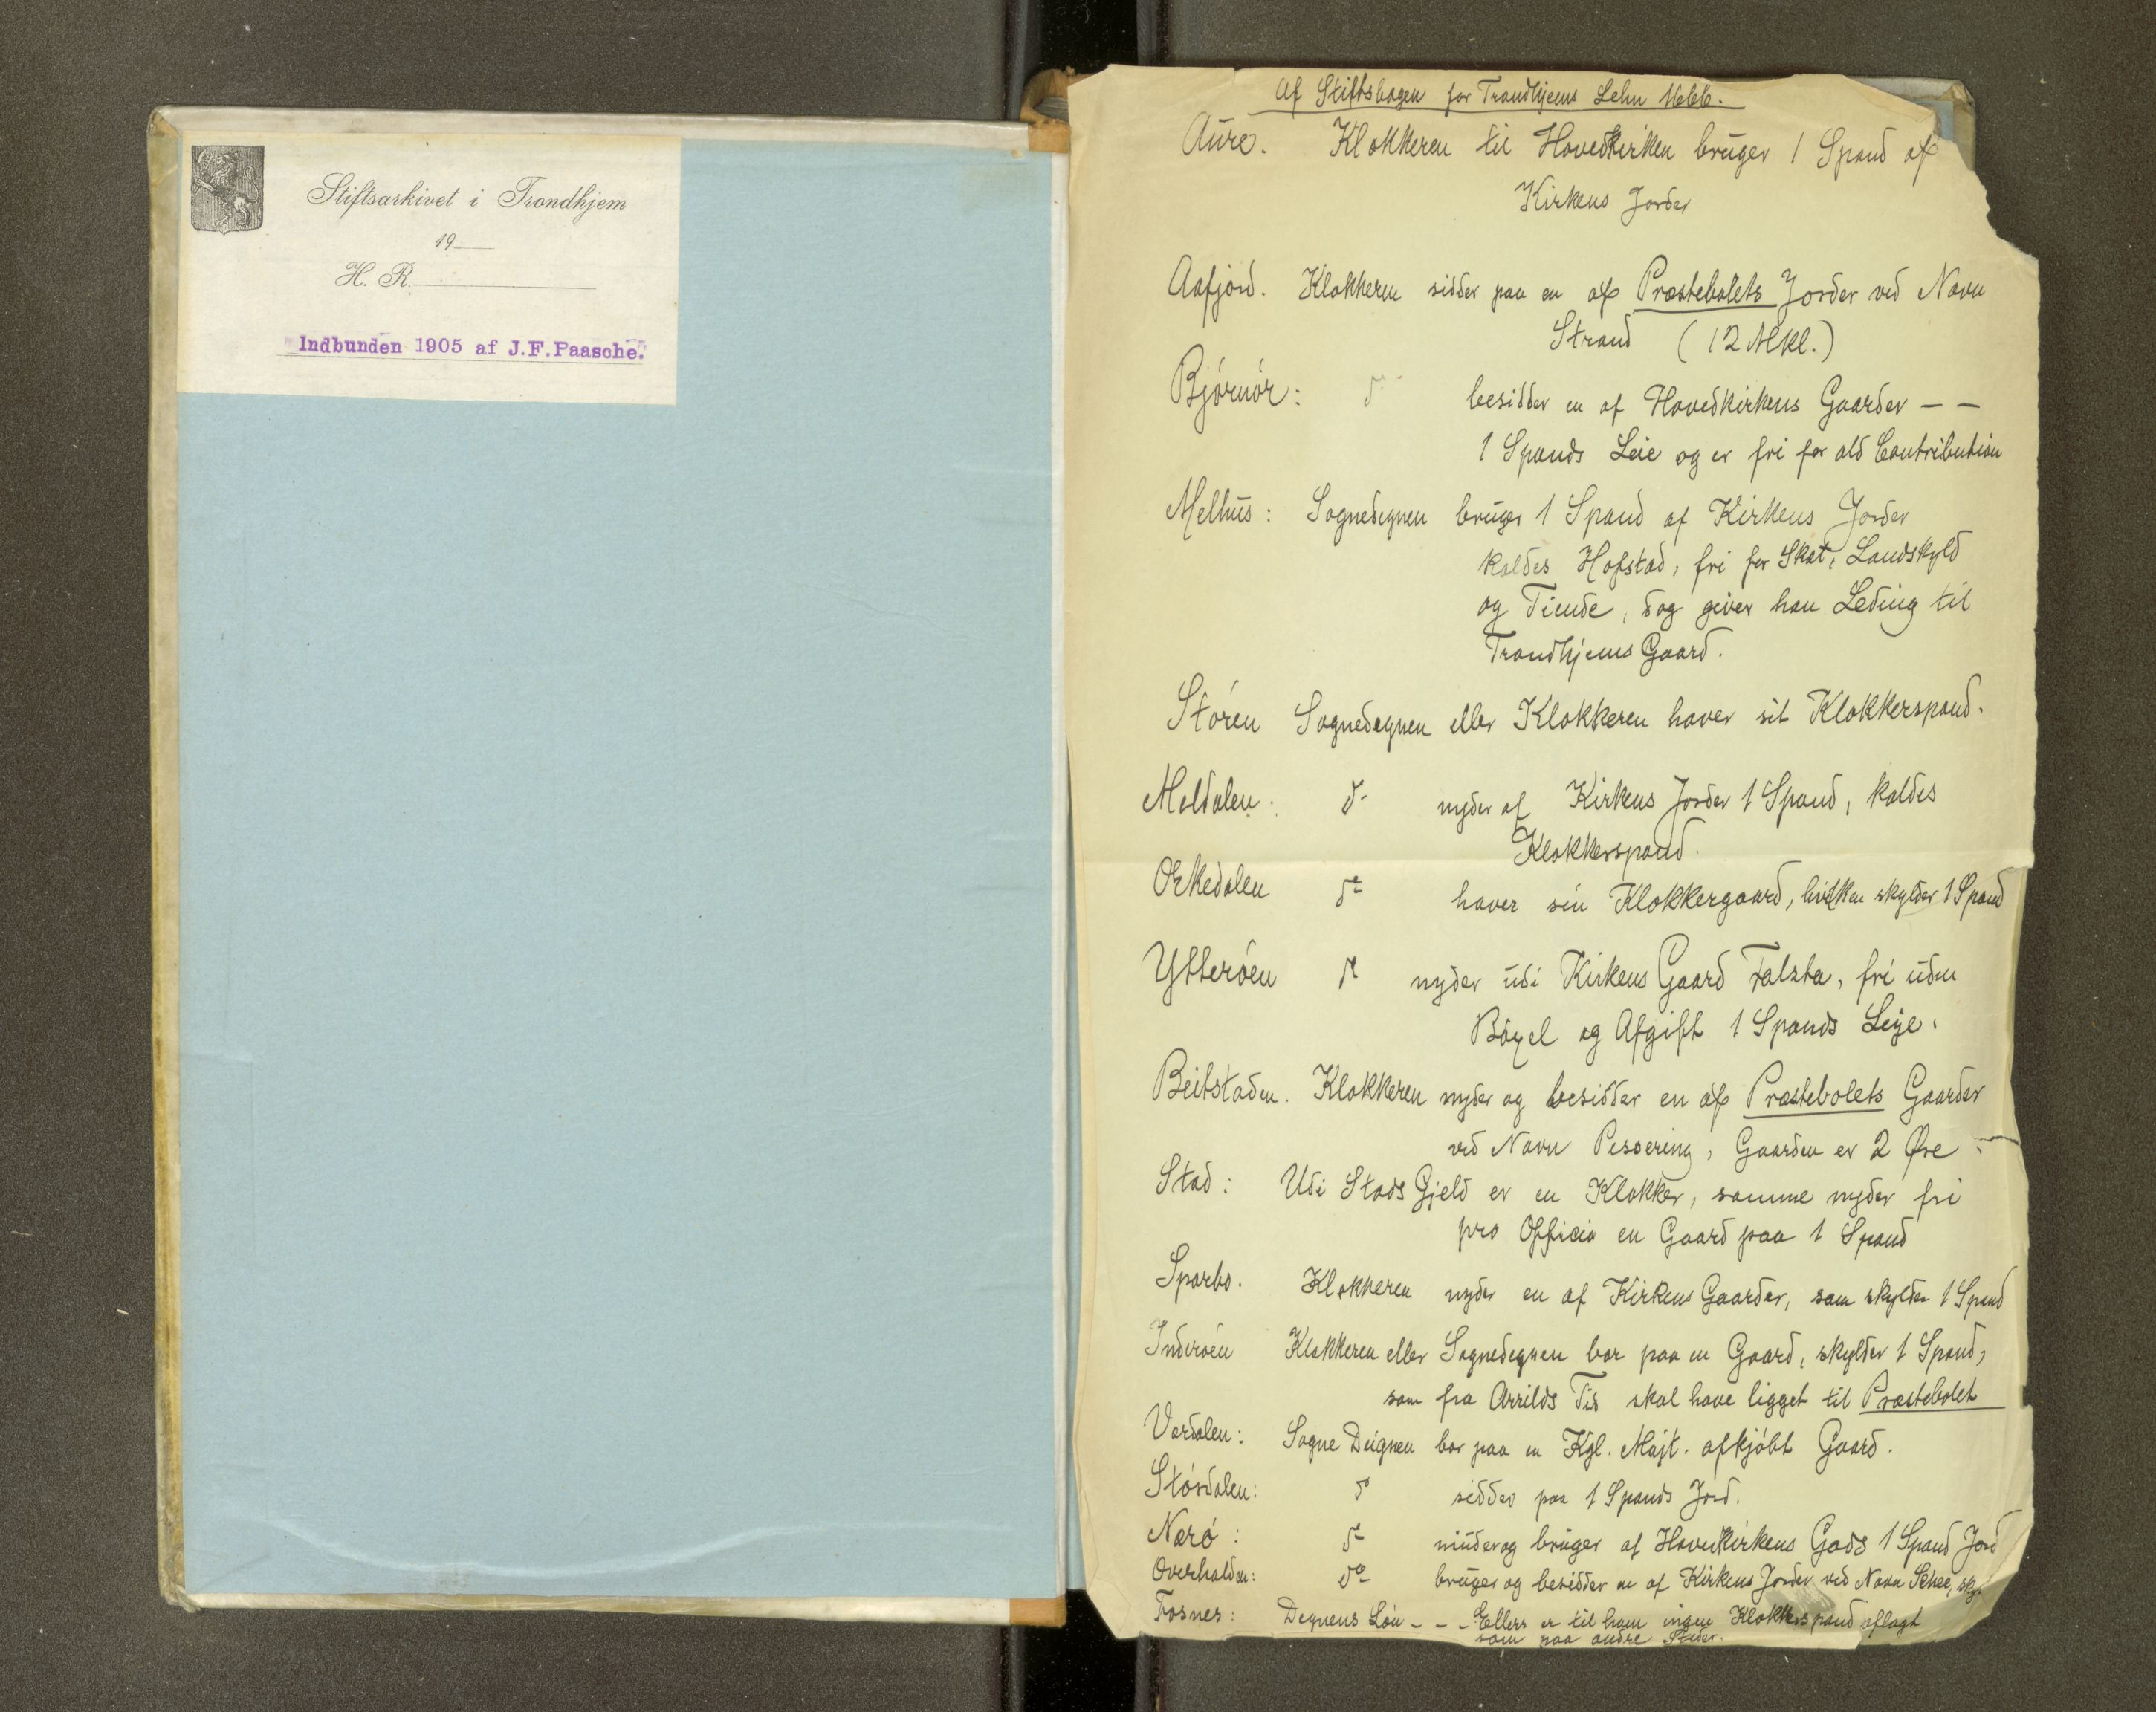 Stiftsarkivet i Trondhjem
19
H. R.
Indbunden 1905 af J.F. Paasche.
Af Stiftsbogen for Trondhjems Lehn 1666.
Aure. Klokkeren til Hovedkirken bruger 1 Spand af
Kirkens Jorder
Aafjord. Klokkeren sidder paa en af Præstebolets Jorder ved Navn
Strand (12 Mkl.)
Bjørnør: d besidder en af Hovedkirkens Gaarder - -
1 Spands Leie og er fri for ald Contribution
Melhus: Sognedegnen bruger 1 Spand af Kirkens Jorder
kaldes Hofstad, fri for Skat, Landskyld
og Tiende, dog giver han Leding til
Trondhjems Gaard.
Støren Sognedegnen eller Klokkeren haver sit Klokkerspand.
Meldalen. d- nyder af Kirkens Jorder 1 Spand, kaldes
Klokkerspand.
Orkedalen do haver sin Klokkergaard, hvilken skylder 1 Spand
Ytterøen do nyder udi Kirkens Gaard Falsta, fri uden
Bøxel og Afgift 1 Spands Leye.
Beitstaden. Klokkeren nyder og besidder en af Præstebolets Gaarder
ved Navn Pessering, Gaarden er 2 Øre -
Stod: Udi Stods Gjeld er en Klokker, samme nyder fri
pro Officio en Gaard paa 1 Spand
Sparbo. Klokkeren nyder en af Kirkens Gaarder, som skylder 1 Spand
Inderøen Klokkeren eller Sognedegnen bor paa en Gaard, skylder 1 Spand,
som fra Arrilds Tid skal have ligget til Præstebolet
Værdalen: Sogne Deignen bor paa en Kgl. Majt. afkjøbt Gaard.
Størdalen: d sidder paa 1 Spands Jord.
Nærø: do niuder og bruger af Hovedkirkens Gods 1 Spand Jord
Overhalden: do bruger og besidder en af Kirkens Jorder ved Navn
Fosnes: Degnens Løn - - - Ellers er til ham ingen Klokkerspand aflagt
som paa andre Steder.